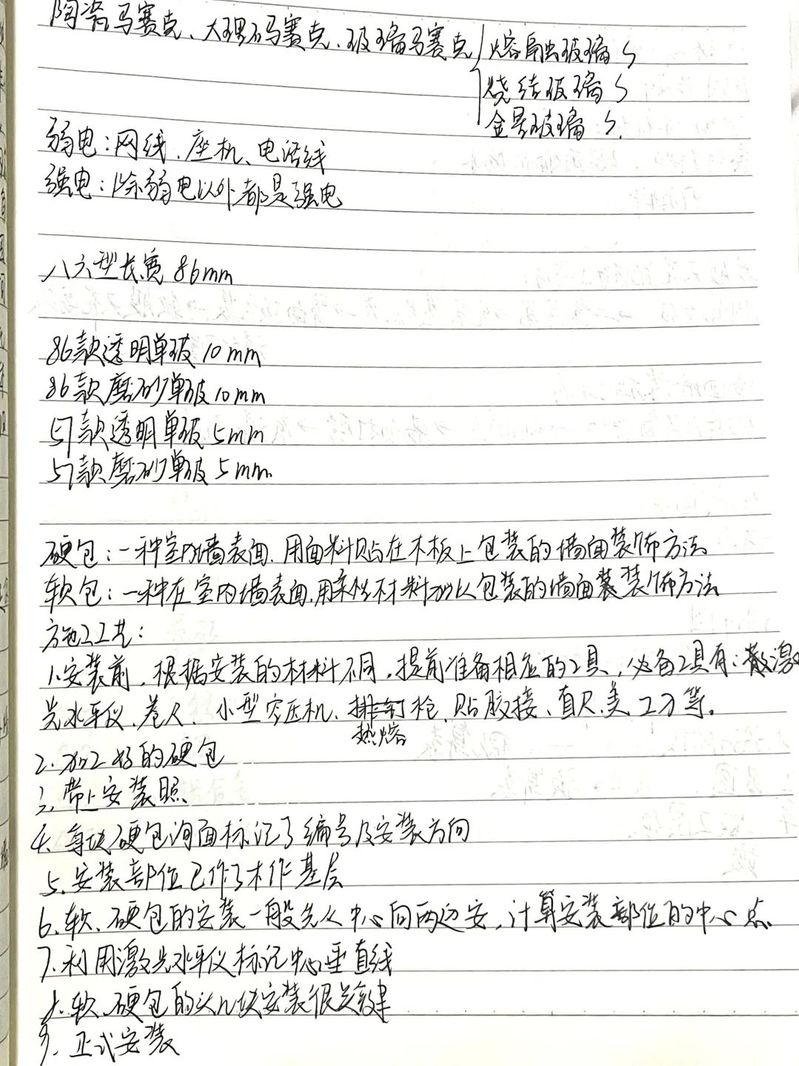 陶瓷马赛克、大理石马赛克、玻璃马赛克 熔融玻璃
烧结玻璃
金星玻璃
弱电：网线、座机、电话线
强电：除弱电以外都是强电
八六型长宽86mm
86款透明单玻10mm
86款磨砂单玻10mm
57款透明单玻5mm
57款磨砂单玻5mm
硬包：一种室内墙表面，用面料贴在木板上包装的墙面装饰方法
软包：一种在室内墙表面，用柔性材料加以包装的墙面装饰方法
施工工艺：
1.安装前，根据安装的材料不同，提前准备相应的工具，必备工具有：激
光水平仪、卷尺、小型空压机、排钉枪、贴胶接、直尺、美工刀等。
热熔
2.加工好的硬包
3.带上安装照
4.每块硬包没面标记了编号及安装方向
5.安装部位已作了木作基层
6.软、硬包的安装一般先从中心向两边安，计算安装部位的中心点
7.利用激光水平仪标记中心垂直线
8.软、硬包的块安装很关键
9.正式安装